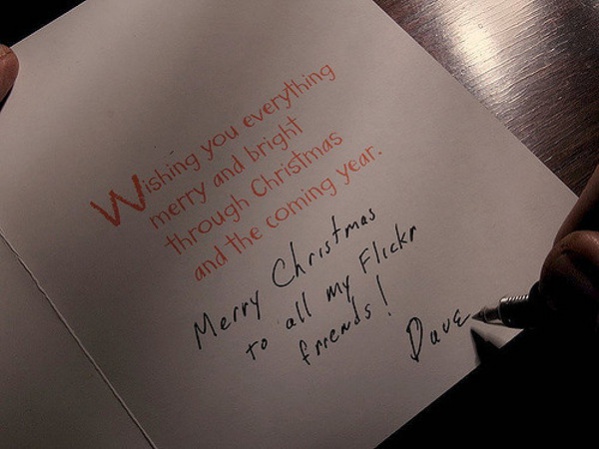 Wishing you everything
merry and bright
through Christmas
and the coming year.
Merry Christmas
to all my Flickr
friends!
Dave